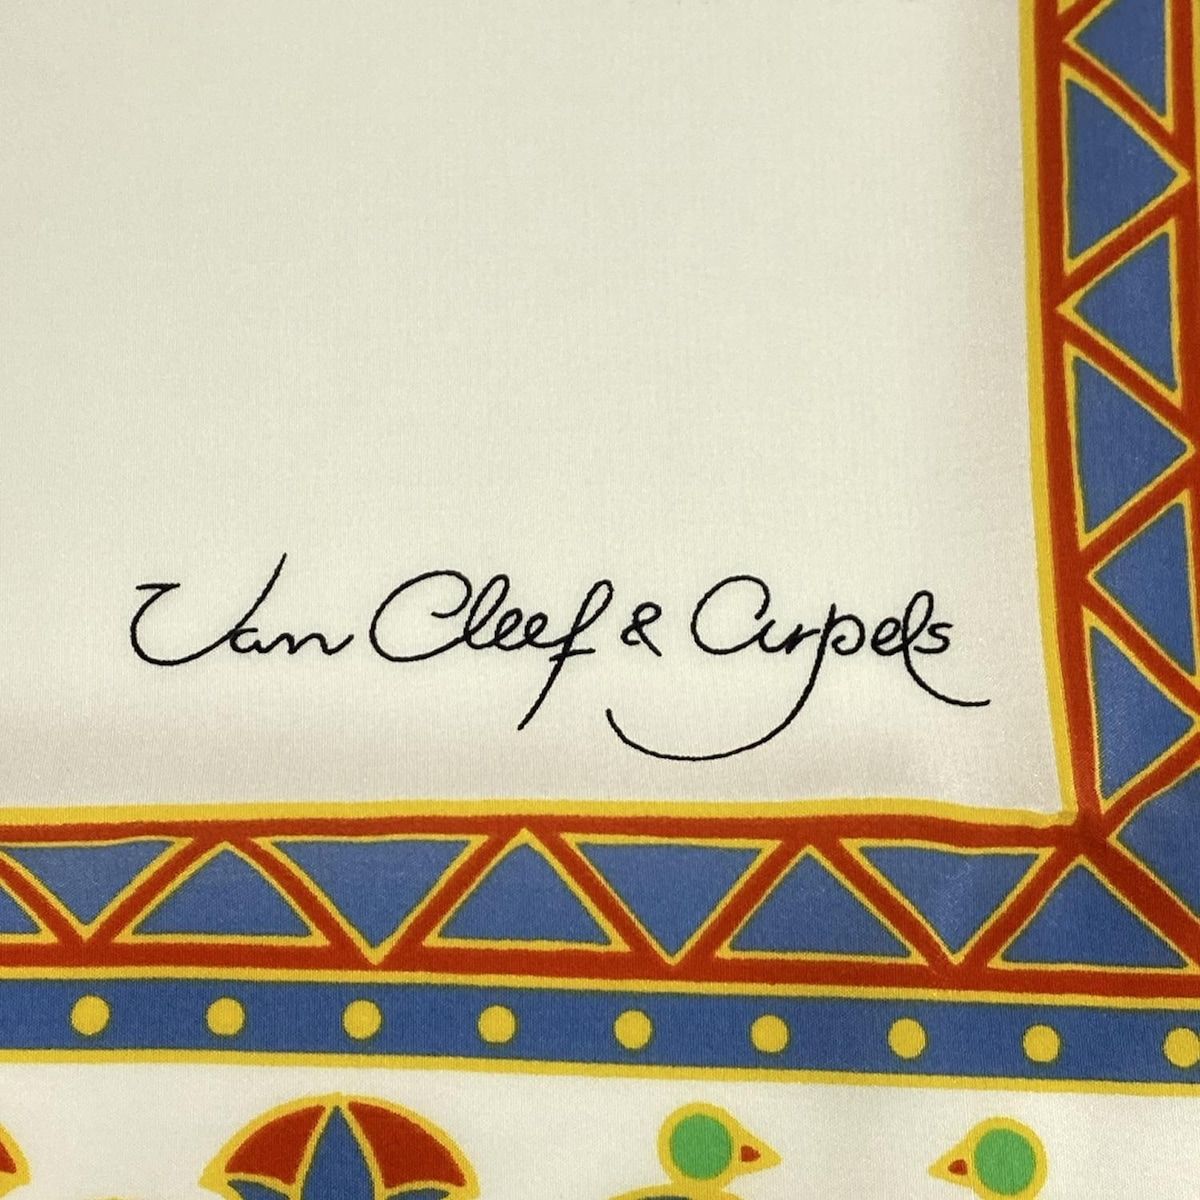 Van Cleef & Arpels